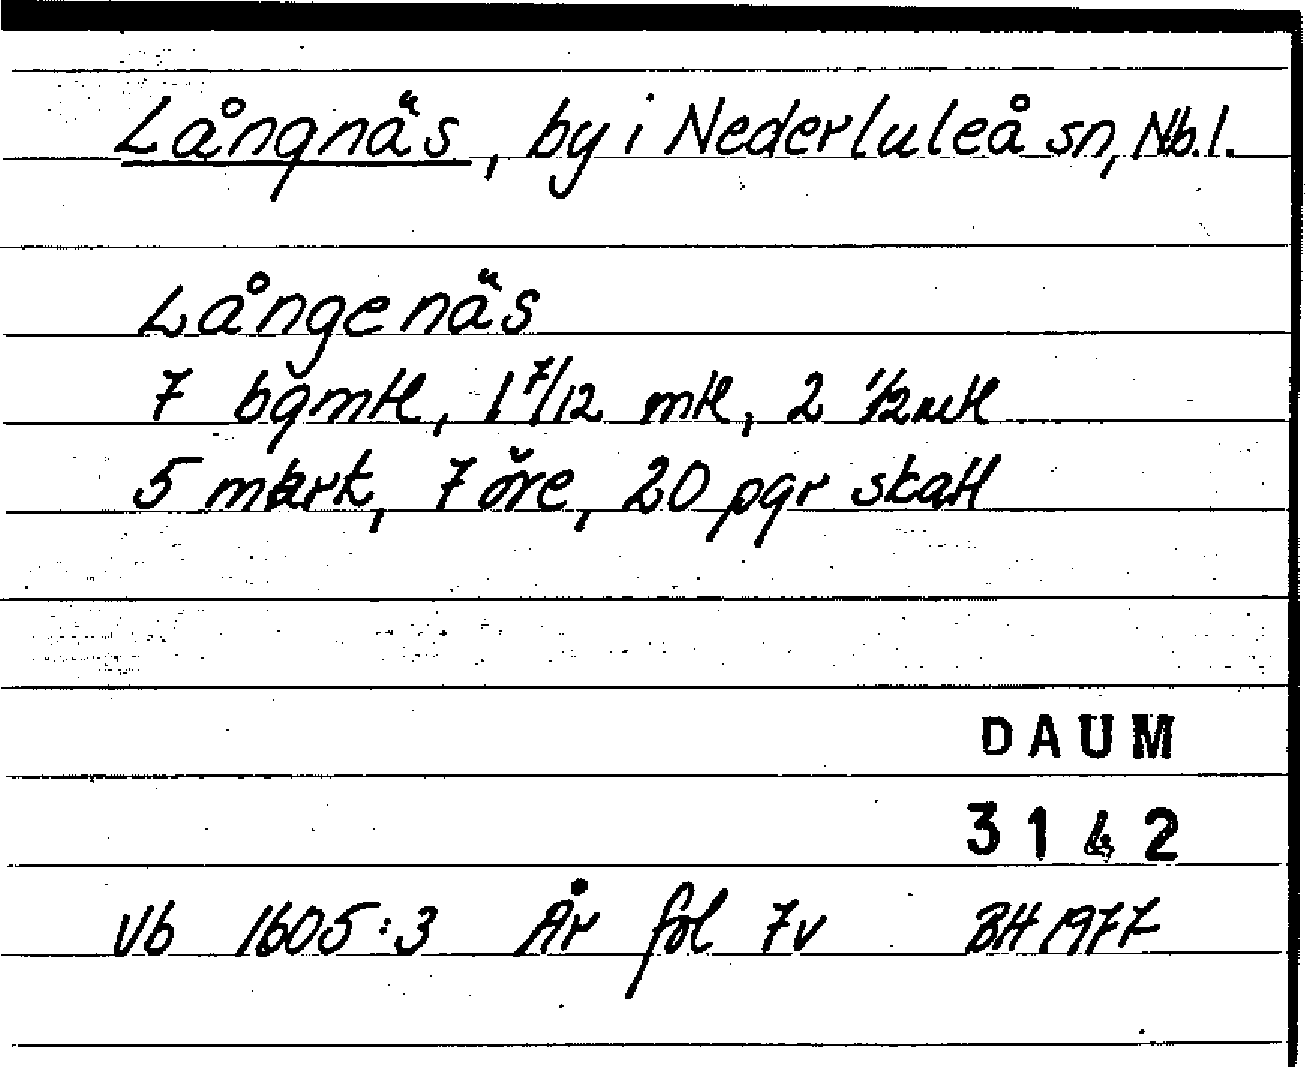 Långnäs, by i Nederluleå sn, Nb.l.
Långenäs
7 bgmtl, 1 7/12 mtl, 2 1/2 mtl
5 mark, 7 öre, 20 pgr skatt
DAUM
3142
Vb 1605:3 År fol 7v BH 1977